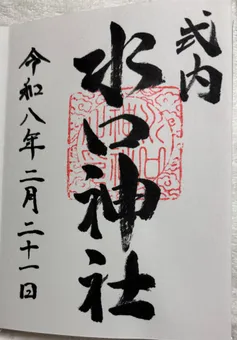 式内
水口神社
令和八年二月二十一日